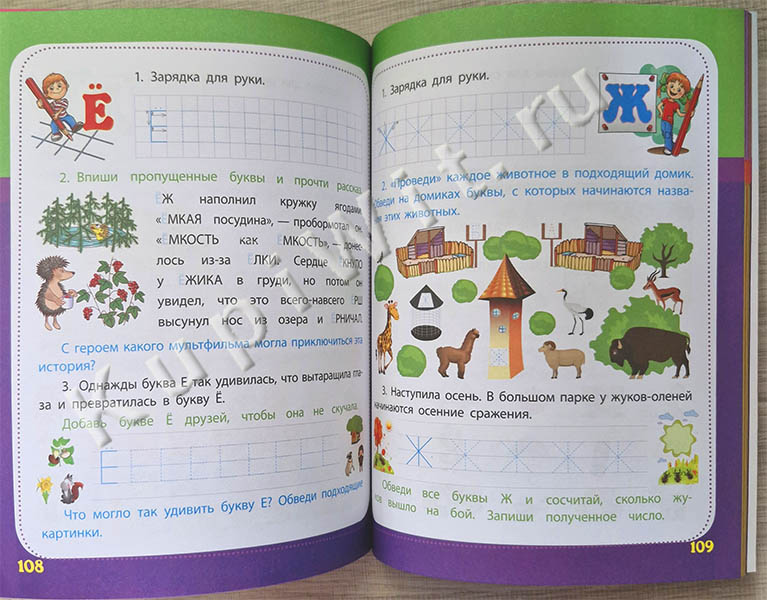 Ё
1. Зарядка для руки.
Ё
2. Впиши пропущенные буквы и прочти рассказ.
ЁЖ наполнил кружку ягодами.
«ЁМКАЯ посудина», — пробормотал он.
«ЁМКОСТЬ как ЁМКОСТЬ», — донес-
лось из-за ЁЛКИ. Сердце ЁКНУЛО
у ЁЖИКА в груди, но потом он
увидел, что это всего-навсего ЁРШ
высунул нос из озера и ЁРНИЧАЛ.
С героем какого мультфильма могла приключиться эта
история?
3. Однажды буква Е так удивилась, что вытаращила гла-
за и превратилась в букву Ё.
Добавь букве Ё друзей, чтобы она не скучала.
Ё
Что могло так удивить букву Е? Обведи подходящие
картинки.
108
1. Зарядка для руки.
Ж
Ж
2. «Проведи» каждое животное в подходящий домик.
Обведи на домиках буквы, с которых начинаются назва-
ния этих животных.
3. Наступила осень. В большом парке у жуков-оленей
начинаются осенние сражения.
Ж
Обведи все буквы Ж и сосчитай, сколько жу-
ков вышло на бой. Запиши полученное число.
109
Kupiwit.ru